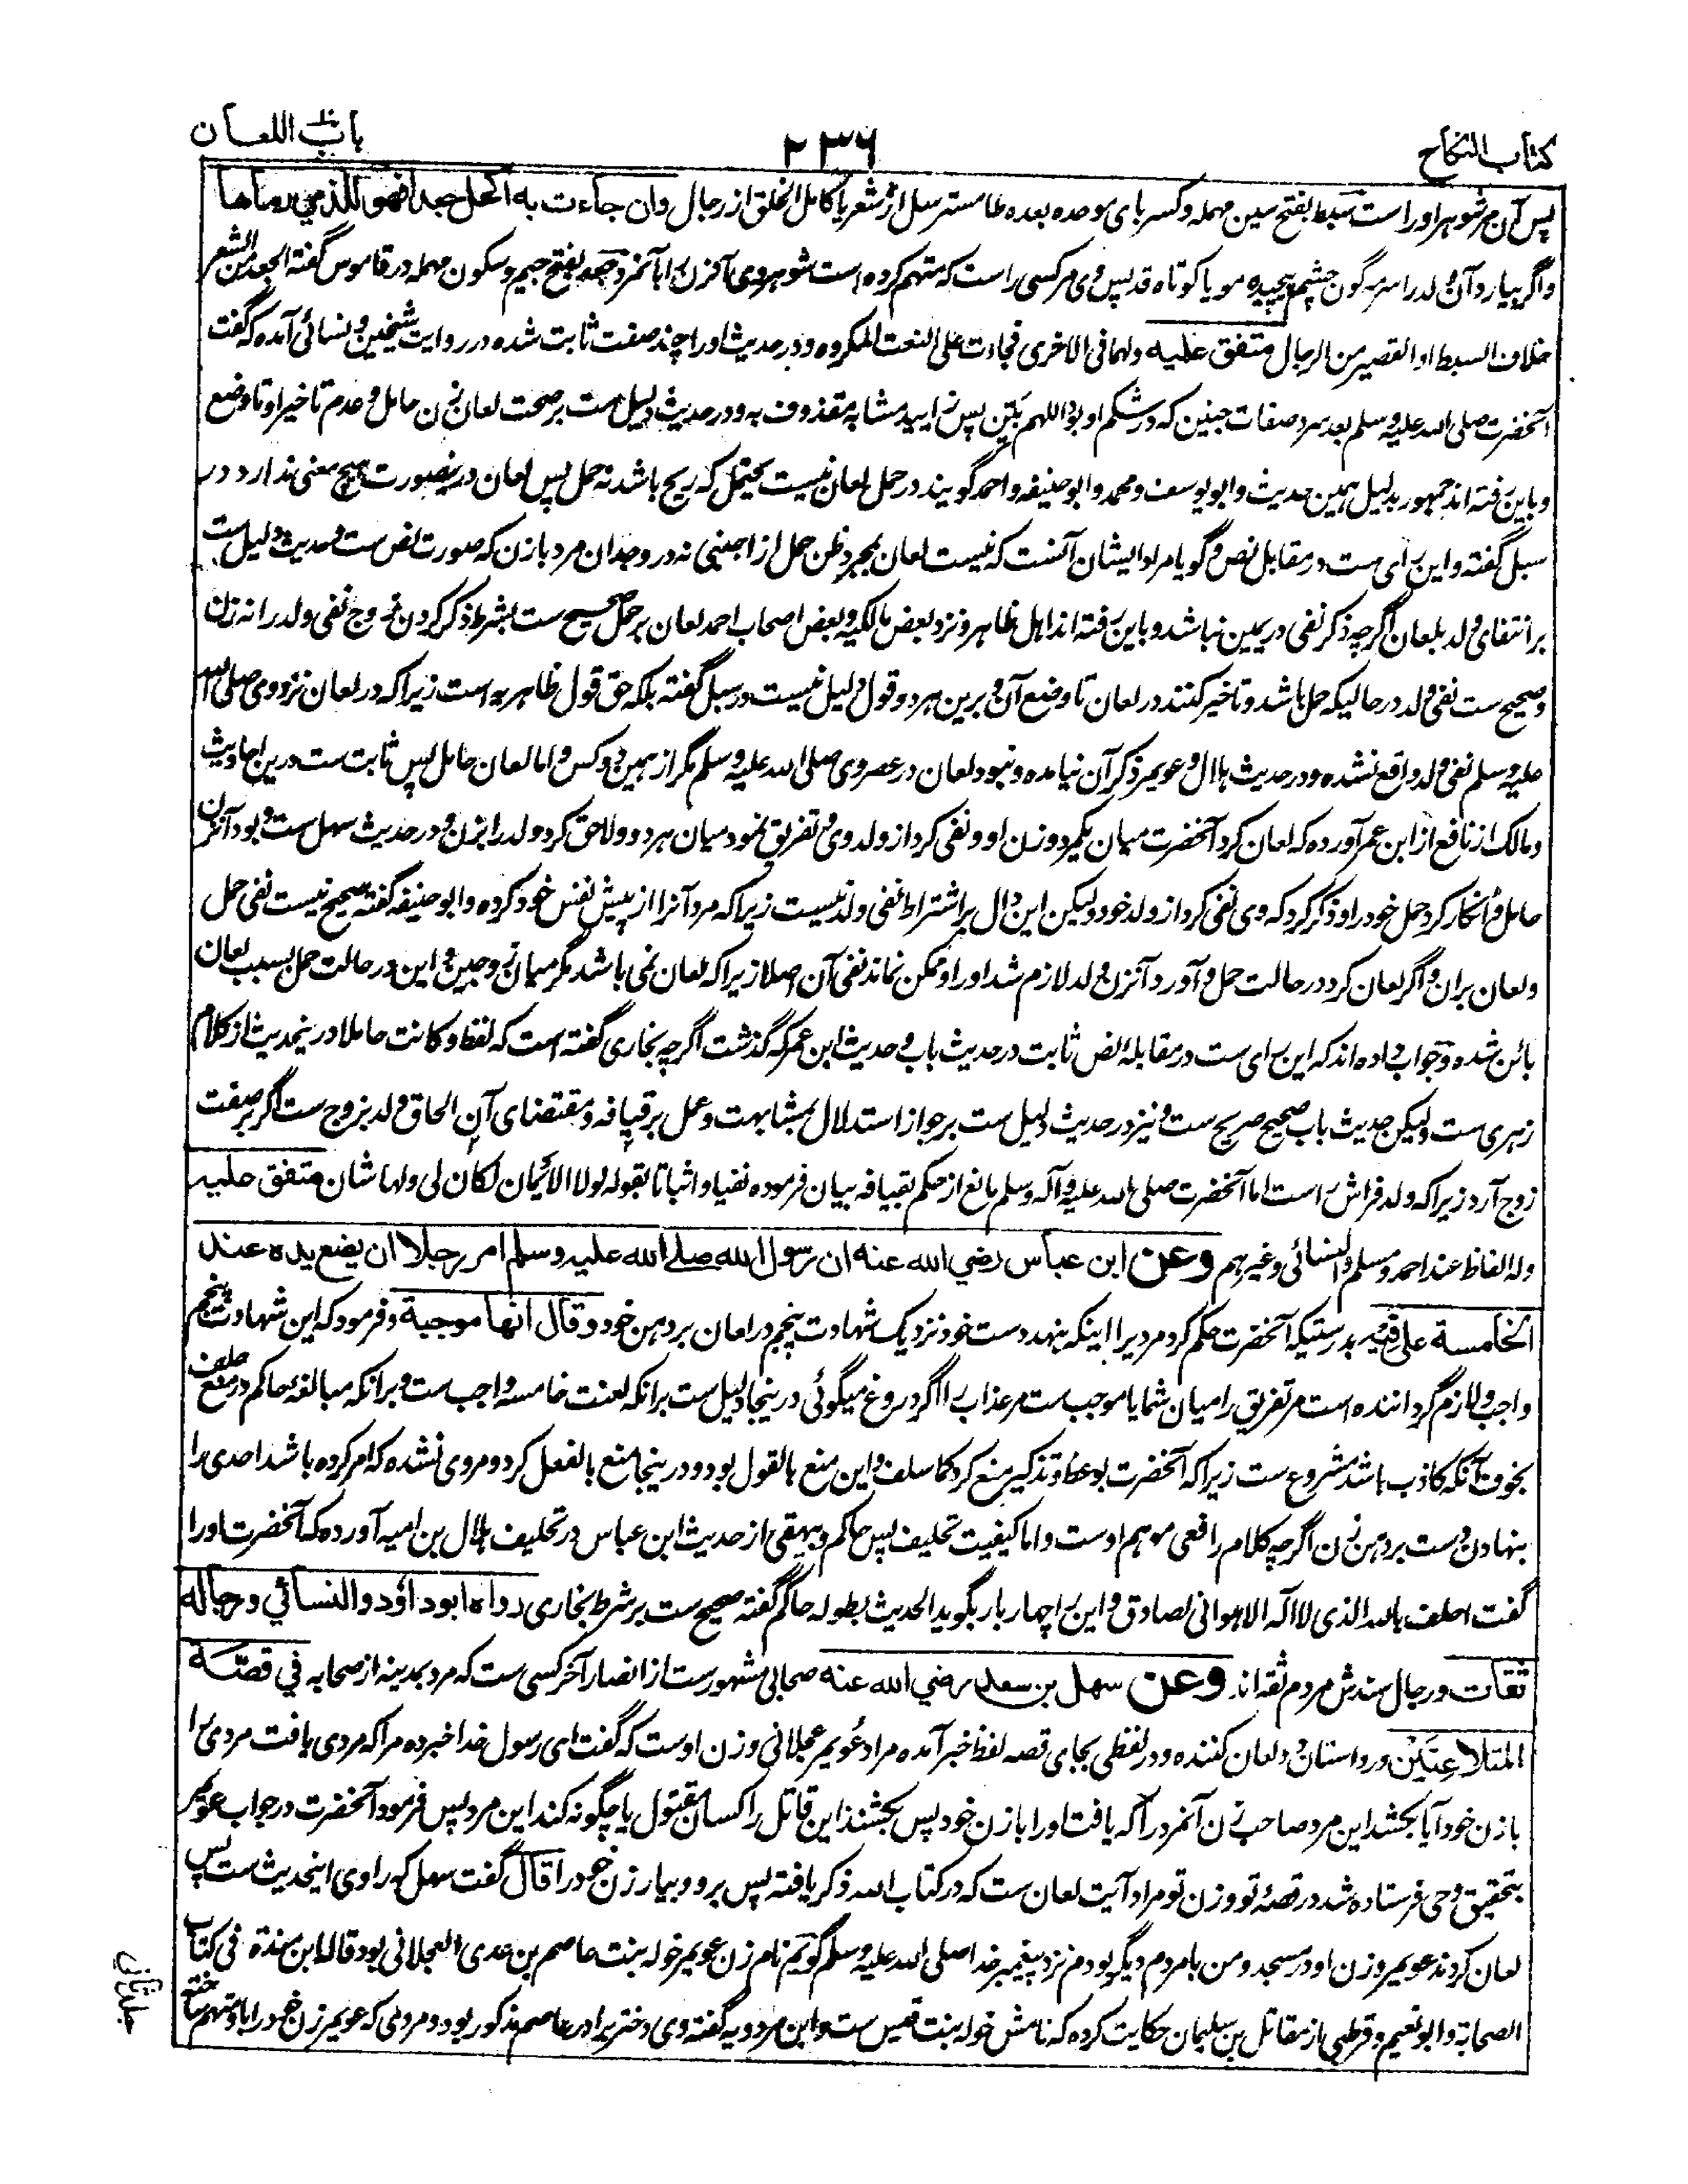 کتاب النکاح
۲۳۶
باب اللعان
پس آن مر شوهر اوراست سَبط بفتح سین مهمله و کسر بای موحده بعده طا مسترسل از شعر یا کامل الخلق از رجال وان جاءت به اکحل جعدا فهو للذي رماها
واگر بیارد آن ولد را سرمه گون چشم پیچیده مو یا کوتاه قد پس وی مر کسی راست که متهم کرده است شوهر وی آنزن را بآنمرد جعد بفتح جیم و سکون مهمله در قاموس گفته الجعد من الشعر
خلاف السبط او القصیر من الرجال متفق علیه ولهما فی الاخری فجاءت علی النعت المکروه ودر حدیث اورا چند صفت ثابت شده در روایت شیخین ونسائی آمده که گفت
آنحضرت صلی الله علیه وسلم بعد سرد صفات جنین که در شکم او بود اللهم بَیّن پس زایید مشابه مقذوف به ودر حدیث دلیل ست بر صحت لعان زن حامل و عدم تاخیر او تا وضع
وباین رفته اند جمهور بدلیل همین حدیث وابو یوسف ومحمد وابو حنیفه واحمد گویند در حمل لعان نیست یحتمل که ریح باشد نه حمل پس لعان درینصورت هیچ معنی ندارد در
سبل گفته واین رای ست در مقابل نص وگویا مراد ایشان آنست که نیست لعان بمجرد ظن حمل از اجنبی نه در وجدان مرد بازن که صورت نص ست وحدیث دلیل ست
بر انتفای ولد بلعان اگرچه ذکر نفی در یمین نباشد وباین رفته اند اهل ظاهر ونزد بعض مالکیه وبعض اصحاب احمد لعان بر حمل صحیح ست بشرط ذکر کردن زوج نفی ولد را نه زن
وصحیح ست نفی ولد در حالیکه حمل باشد وتاخیر کنند در لعان تا وضع آن وبرین هر دو قول دلیل نیست در سبل گفته بلکه حق قول ظاهریه است زیرا که در لعان نزد وی صلی الله
علیه وسلم نفی ولد واقع نشده ودر حدیث هلال وعویمر ذکر آن نیامده ونبود لعان در عصر وی صلی الله علیه وسلم مگر از همین دو کس واما لعان حامل پس ثابت ست درین احادیث
ومالک از نافع از ابن عمر آورده که لعان کرد آنحضرت میان یکمرد وزن او ونفی کرد از ولد وی وتفریق نمود میان هر دو ولاحق کرد ولد را بزن ودر حدیث سهل ست وبود آنزن
حامل وانکار کرد حمل خود را وذکر کرد که وی نفی کرد از ولد خود ولیکن این دال بر اشتراط نفی ولد نیست زیرا که مرد آنرا از پیش نفس خود کرده وابو حنیفه گفته صحیح نیست نفی حمل
ولعان بران واگر لعان کرد در حالت حمل وآورد آنزن ولد لازم شد اورا وممکن نماند نفی آن اصلا زیرا که لعان نمی باشد مگر میان زوجین واین در حالت حمل بسبب لعان
بائن شده وجواب داده اند که این رای ست در مقابله نص ثابت در حدیث باب وحدیث ابن عمر که گذشت اگرچه بخاری گفته است که لفظ وکانت حاملا درینحدیث از کلام
زهری ست ولیکن حدیث باب صحیح صریح ست ونیز در حدیث دلیل ست بر جواز استدلال بمشابهت وعمل بر قیافه ومقتضای آن الحاق ولد بزوج ست اگر بر صفت
زوج آرد زیرا که ولد فراش راست اما آنحضرت صلی الله علیه وآله وسلم مانع از حکم بقیافه بیان فرموده نفیا واثباتا بقوله لولا الایمان لکان لی ولها شان متفق علیه
وله الفاظ عند احمد ومسلم والنسائی وغیرهم وعن ابن عباس رضي الله عنه ان رسول الله صلے الله علیه وسلم امر رجلا ان يضع يده عند
الخامسة علی فیه بدرستیکه آنحضرت حکم کرد مردیرا اینکه بنهد دست خود نزدیک شهادت پنجم در لعان بر دهن خود وقال انها موجبة وفرمود که این شهادت پنجم
واجب ولازم گرداننده است مر تفریق را میان شما یا موجب ست مر عذاب را اگر دروغ میگوئی درینجا دلیل ست برانکه لعنت خامسه واجب ست وبرانکه مبالغه حاکم در منع حلف
بخوف آنکه کاذب باشد مشروع ست زیرا که آنحضرت بوعظ وتذکیر منع کرد کما سلف واین منع بالقول بود ودرینجا منع بالفعل کرد ومروی نشده که امر کرده باشد احدی را
بنهادن دست بر دهن زن اگرچه کلام رافعی موهم اوست واما کیفیت تحلیف پس حاکم وبیهقی از حدیث ابن عباس در تحلیف هلال بن امیه آورده که آنحضرت اورا
گفت احلف بالله الذی لا اله الا هو انی لصادق واین را چهار بار بگوید الحدیث بطوله حاکم گفته صحیح ست بر شرط بخاری رواه ابو داؤد والنسائي ورجاله
ثقات ورجال سندش مردم ثقه اند وعن سهل بن سعد رضي الله عنه صحابی مشهورست از انصار آخر کسی ست که مرد بمدینه از صحابه في قصّة
المتلاعِنَیْن در داستان دو لعان کننده ودر لفظی بجای قصه لفظ خبر آمده مراد عُویمر عجلانی وزن اوست که گفت ای رسول خدا خبر ده مرا که مردی یافت مردی را
بازن خود آیا بکشد این مرد صاحب زن آنمرد را که یافت اورا بازن خود پس بکشند این قاتل را کسان مقتول یا چگونه کند این مرد پس فرمود آنحضرت در جواب عویمر
بتحقیق وحی فرستاده شد در قصۀ تو وزن تو مراد آیت لعان ست که در کتاب الله ذکر یافته پس برو وبیار زن خود را قال گفت سهل که راوی اینحدیث ست پس
لعان کردند عویمر وزن او در مسجد ومن با مردم دیگر بودم نزد پیغمبر خدا صلی الله علیه وسلم گویم نام زن عویمر خوله بنت عاصم بن عدی العجلانی بود قاله ابن مندة فی کتاب
الصحابة وابو نعیم وقرطبی از مقاتل بن سلیمان حکایت کرده که نامش خوله بنت قیس ست وابن مردویه گفته وی دختر برادر عاصم مذکور بود ومردی که عویمر زن خود را باو متهم ساخته
جلد ثانی